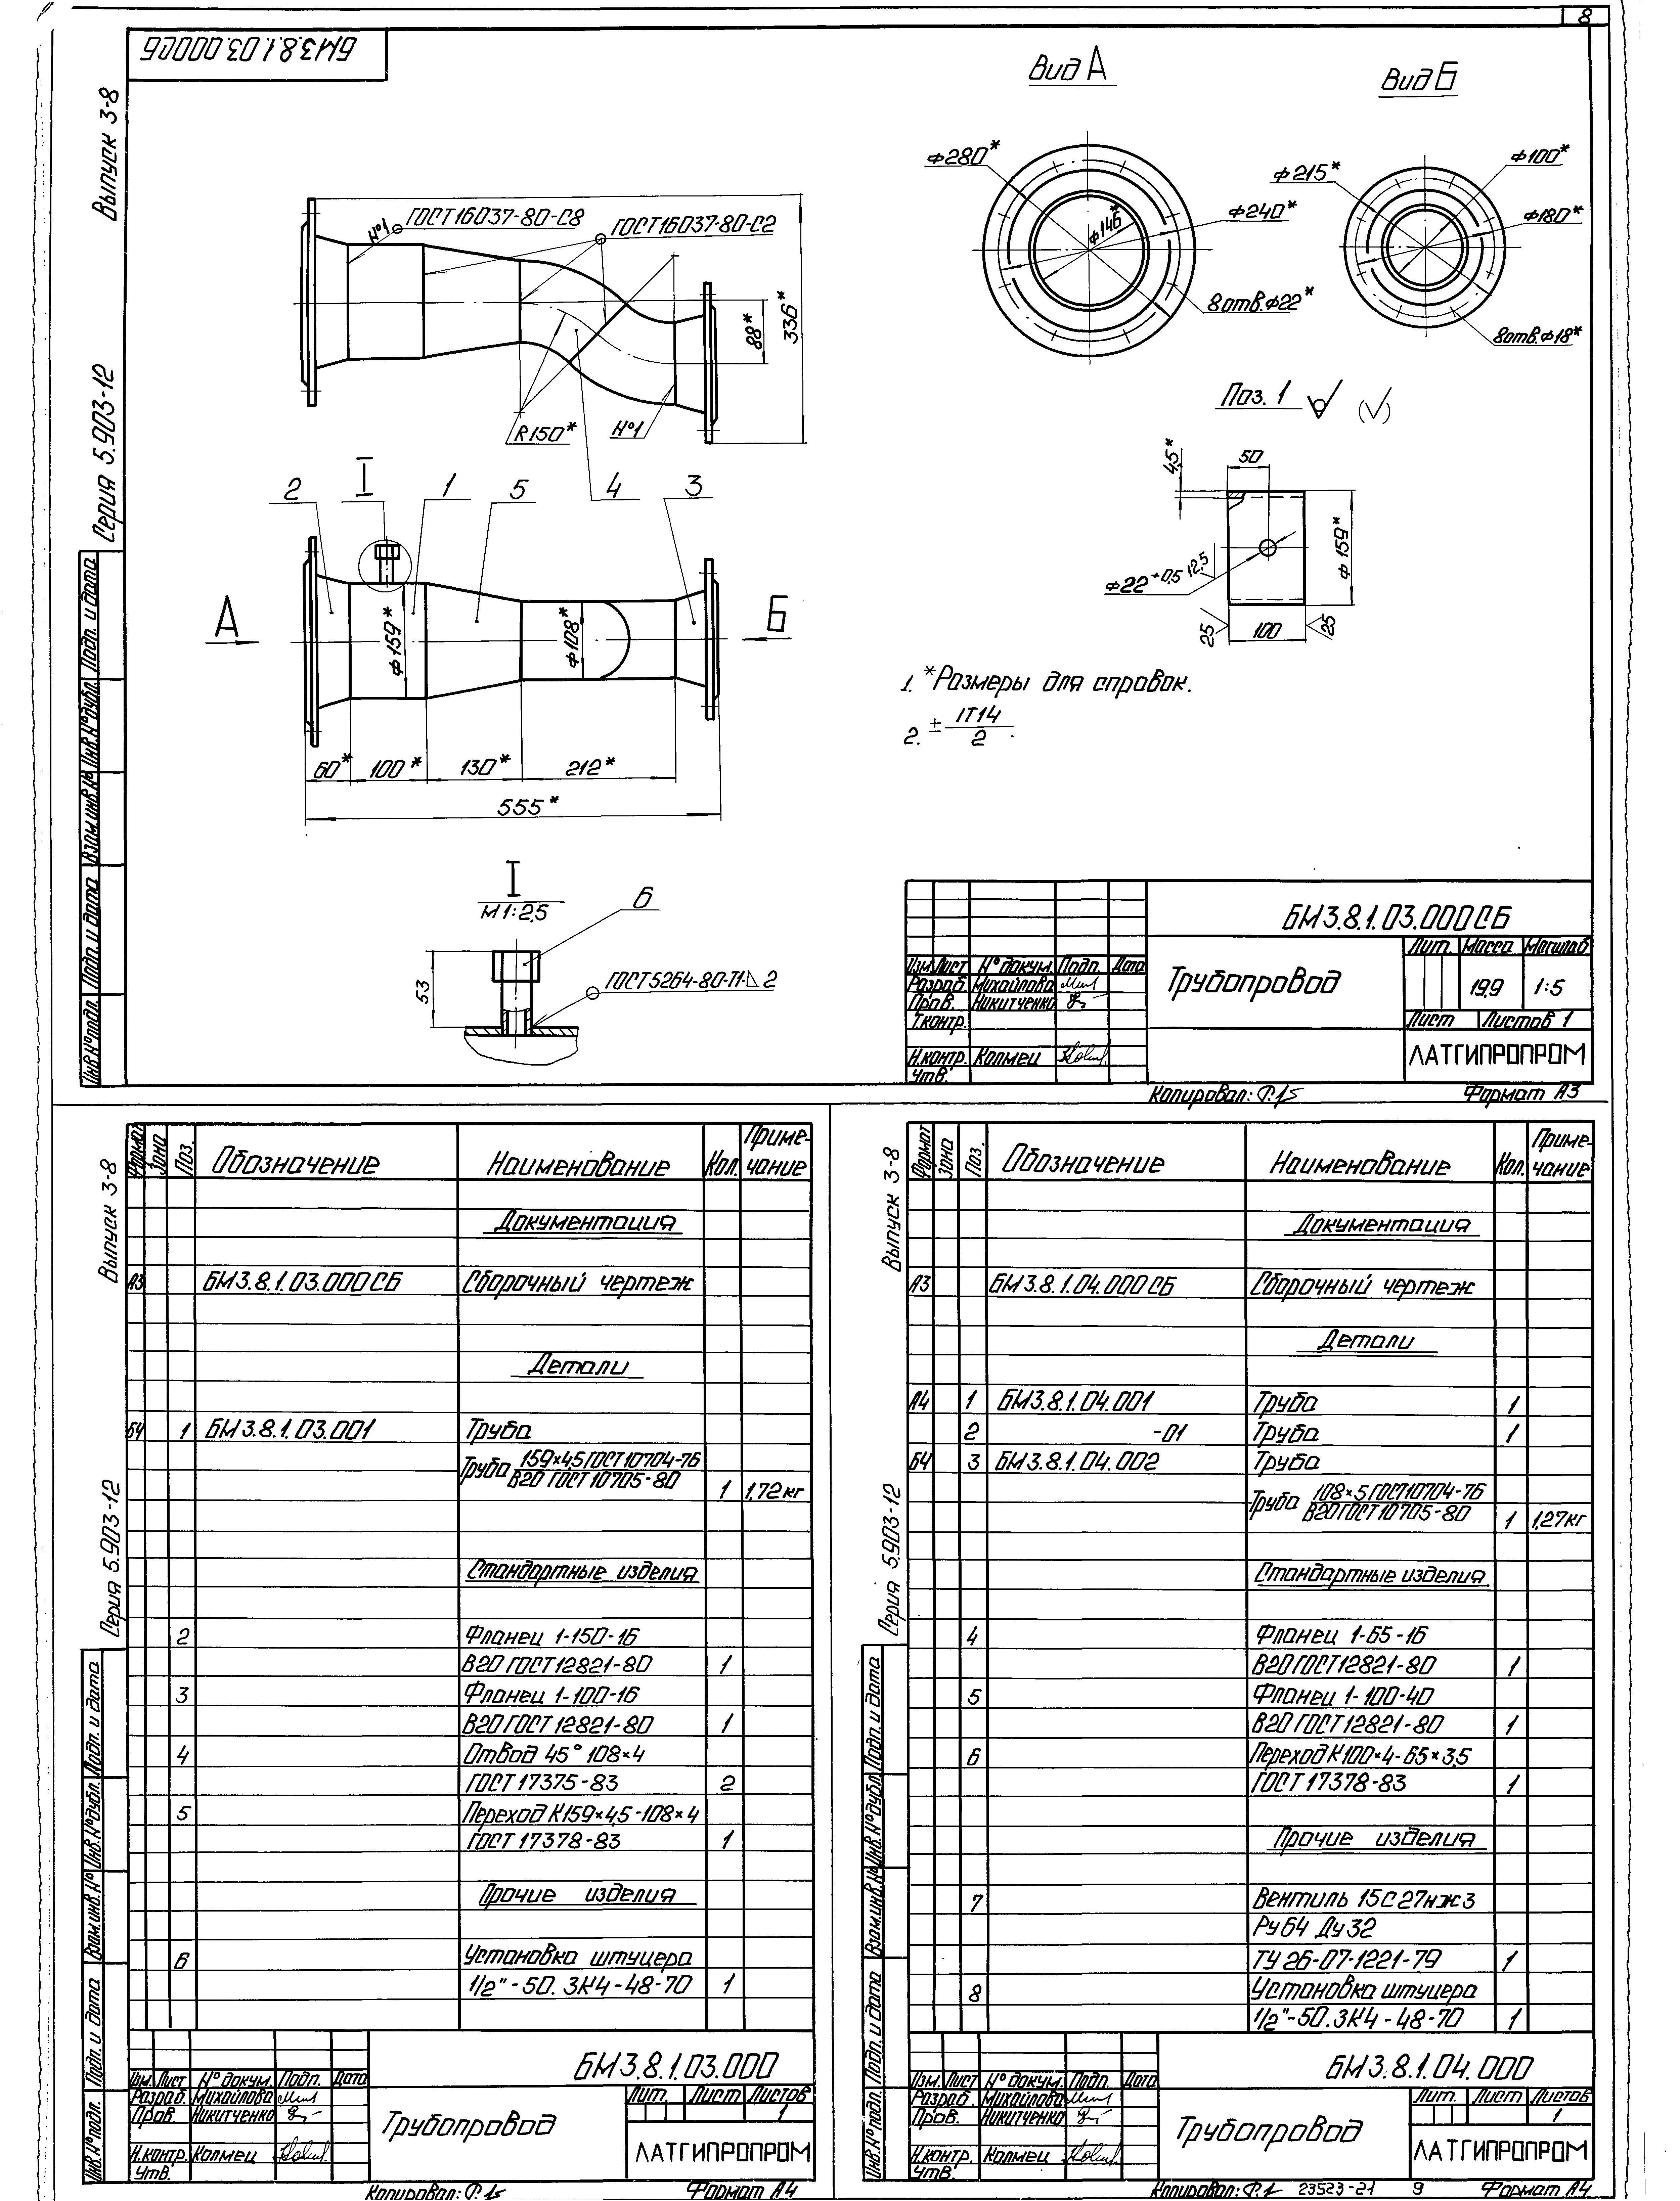 8
БМ3.8.1.03.000СБ
Выпуск 3-8
Серия 5.903-12
Вид А
Вид Б
ГОСТ16037-80-С8
ГОСТ16037-80-С2
№1
336*
88*
R150*
№1
4
ф280*
ф240*
ф146*
8отв.ф22*
ф215*
ф100*
ф180*
8отв.ф18*
Поз. 1
(√)
2
I
1
5
3
А
Б
ф159*
ф108*
60*
100*
130*
212*
555*
4,5*
50
ф159*
ф22+0,5
12,5
25
100
25
1. *Размеры для справок.
2. ± IT14
2
I
М 1:2,5
6
53
ГОСТ 5264-80-Т1-⊿2
Инв.№подл.
Подп. и дата
Взам.инв.№
Инв.№дубл.
Подп. и дата
БМ3.8.1.03.000СБ
Изм. Лист № докум. Подп. Дата
Разраб. Михайлова
Пров. Никитченко
Т.контр.
Н.контр. Колмец
Утв.
Трубопровод
Лит. Масса Масштаб
19,9 1:5
Лист Листов 1
ЛАТГИПРОПРОМ
Копировал:
Формат А3
Выпуск 3-8
Серия 5.903-12
Формат Зона Поз. Обозначение Наименование Кол. Приме-
чание
Документация
А3 БМ3.8.1.03.000СБ Сборочный чертеж
Детали
Б4 1 БМ3.8.1.03.001 Труба
Труба 159×4,5 ГОСТ10704-76
В20 ГОСТ10705-80
1 1,72кг
Стандартные изделия
2 Фланец 1-150-16
В20 ГОСТ12821-80 1
3 Фланец 1-100-16
В20 ГОСТ 12821-80 1
4 Отвод 45° 108×4
ГОСТ 17375-83 2
5 Переход К159×4,5-108×4
ГОСТ 17378-83 1
Прочие изделия
6 Установка штуцера
1/2"-50. ЗК4-48-70 1
Инв.№подл.
Подп. и дата
Взам.инв.№
Инв.№дубл.
Подп. и дата
БМ3.8.1.03.000
Изм. Лист № докум. Подп. Дата
Разраб. Михайлова
Пров. Никитченко
Н.контр. Колмец
Утв.
Трубопровод
Лит. Лист Листов
1
ЛАТГИПРОПРОМ
Копировал:
Формат А4
Выпуск 3-8
Серия 5.903-12
Формат Зона Поз. Обозначение Наименование Кол. Приме-
чание
Документация
А3 БМ3.8.1.04.000СБ Сборочный чертеж
Детали
А4 1 БМ3.8.1.04.001 Труба 1
2 -01 Труба 1
Б4 3 БМ3.8.1.04.002 Труба
Труба 108×5 ГОСТ10704-76
В20 ГОСТ10705-80
1 1,27кг
Стандартные изделия
4 Фланец 1-65-16
В20 ГОСТ12821-80 1
5 Фланец 1-100-40
В20 ГОСТ12821-80 1
6 Переход К100×4-65×3,5
ГОСТ 17378-83 1
Прочие изделия
7 Вентиль 15С27нж3
Ру64 Ду32
ТУ 26-07-1221-79 1
8 Установка штуцера
1/2"-50.ЗК4-48-70 1
Инв.№подл.
Подп. и дата
Взам.инв.№
Инв.№дубл.
Подп. и дата
БМ3.8.1.04.000
Изм. Лист № докум. Подп. Дата
Разраб. Михайлова
Пров. Никитченко
Н.контр. Колмец
Утв.
Трубопровод
Лит. Лист Листов
1
ЛАТГИПРОПРОМ
Копировал:
23523-21 9
Формат А4